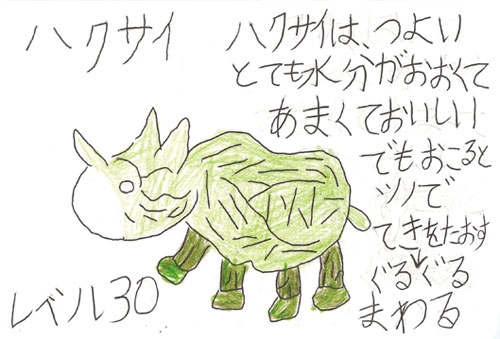 ハクサイ
ハクサイは、つよい
とても水分がおおくて
あまくておいしい
でもおこると
ツノで
てきをたおす
↓
ぐるぐる
まわる
レベル30